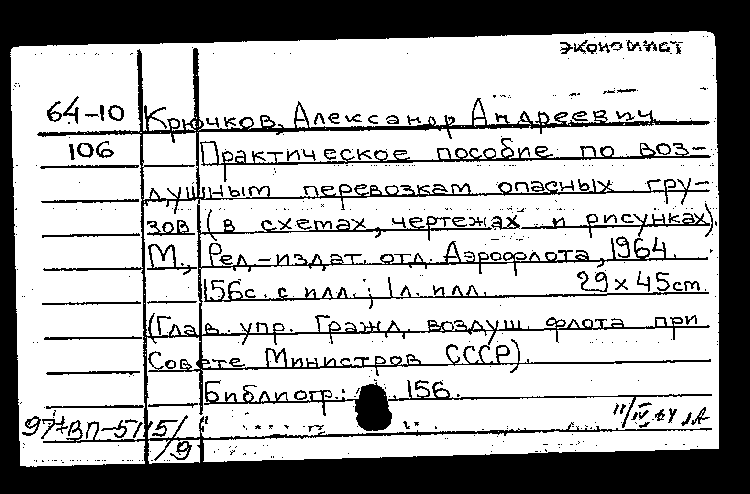 экономист
64-10 Крючков, Александр Андреевич
106 Практическое пособие по воз-
душным перевозкам опасных гру-
зов (в схемах, чертежах и рисунках).
М., Ред.-издат. отд. Аэрофлота, 1964.
156с. с илл.; 1л. илл. 29х45см.
(Глав. упр. Гражд. воздуш. флота при
Совете Министров СССР).
Библиогр.: 156.
11/IV 64